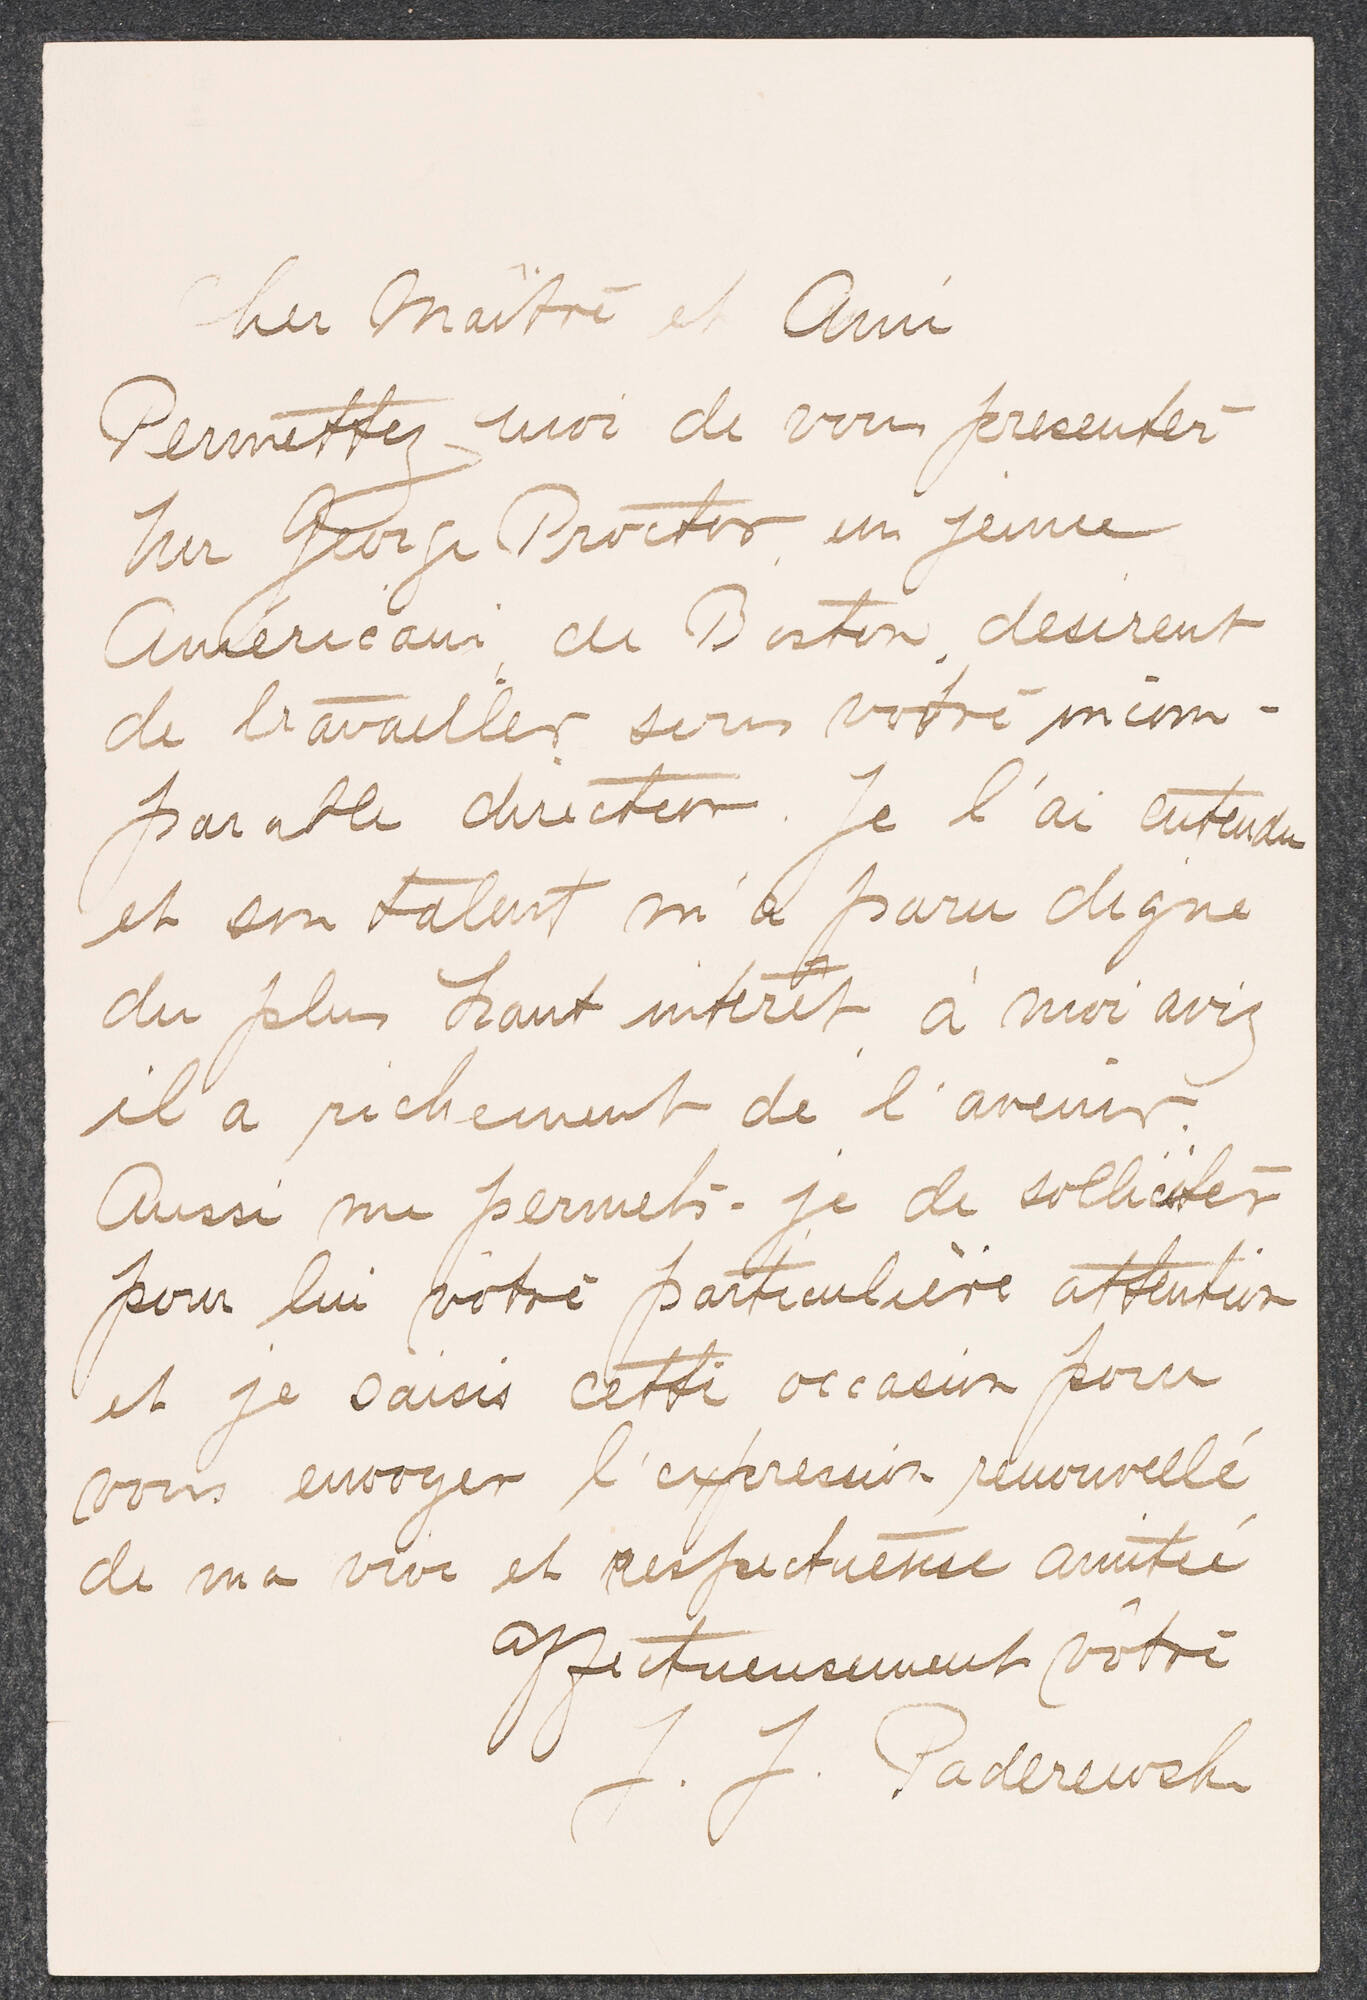 Cher Maître et Ami
Permettez-moi de vous presenter
Mr George Proctor, un jeune
Américain, de Boston, desirent
de travailler sous votre incom-
parable direction. Je l'ai entendu
et son talent m'a paru digne
du plus haut intérêt, à moi avis
il a richement de l'avenir.
Aussi me permets-je de solliciter
pour lui vôtre particulière attention
et je saisis cette occasion pour
vous envoyer l'expression renouvellé
de ma vive et respectueuse amitié
affectueusement vôtre
J. J. Paderewski